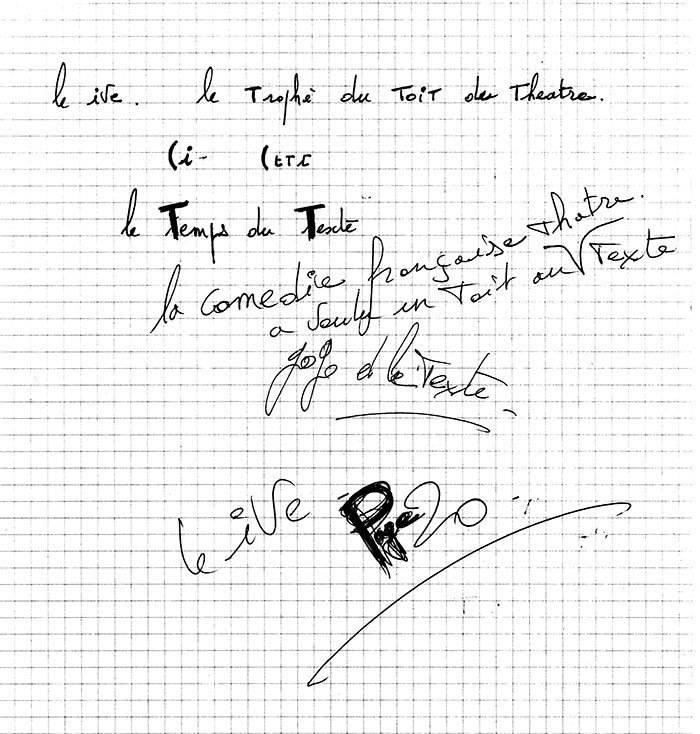 le ive. le Trophè du Toit du Theatre.
(i- (ETC
le Temps du Texte
la comedie française Thatre.
a voulu un Toit au Texte
gogo et le Texte
Le ive Page 20